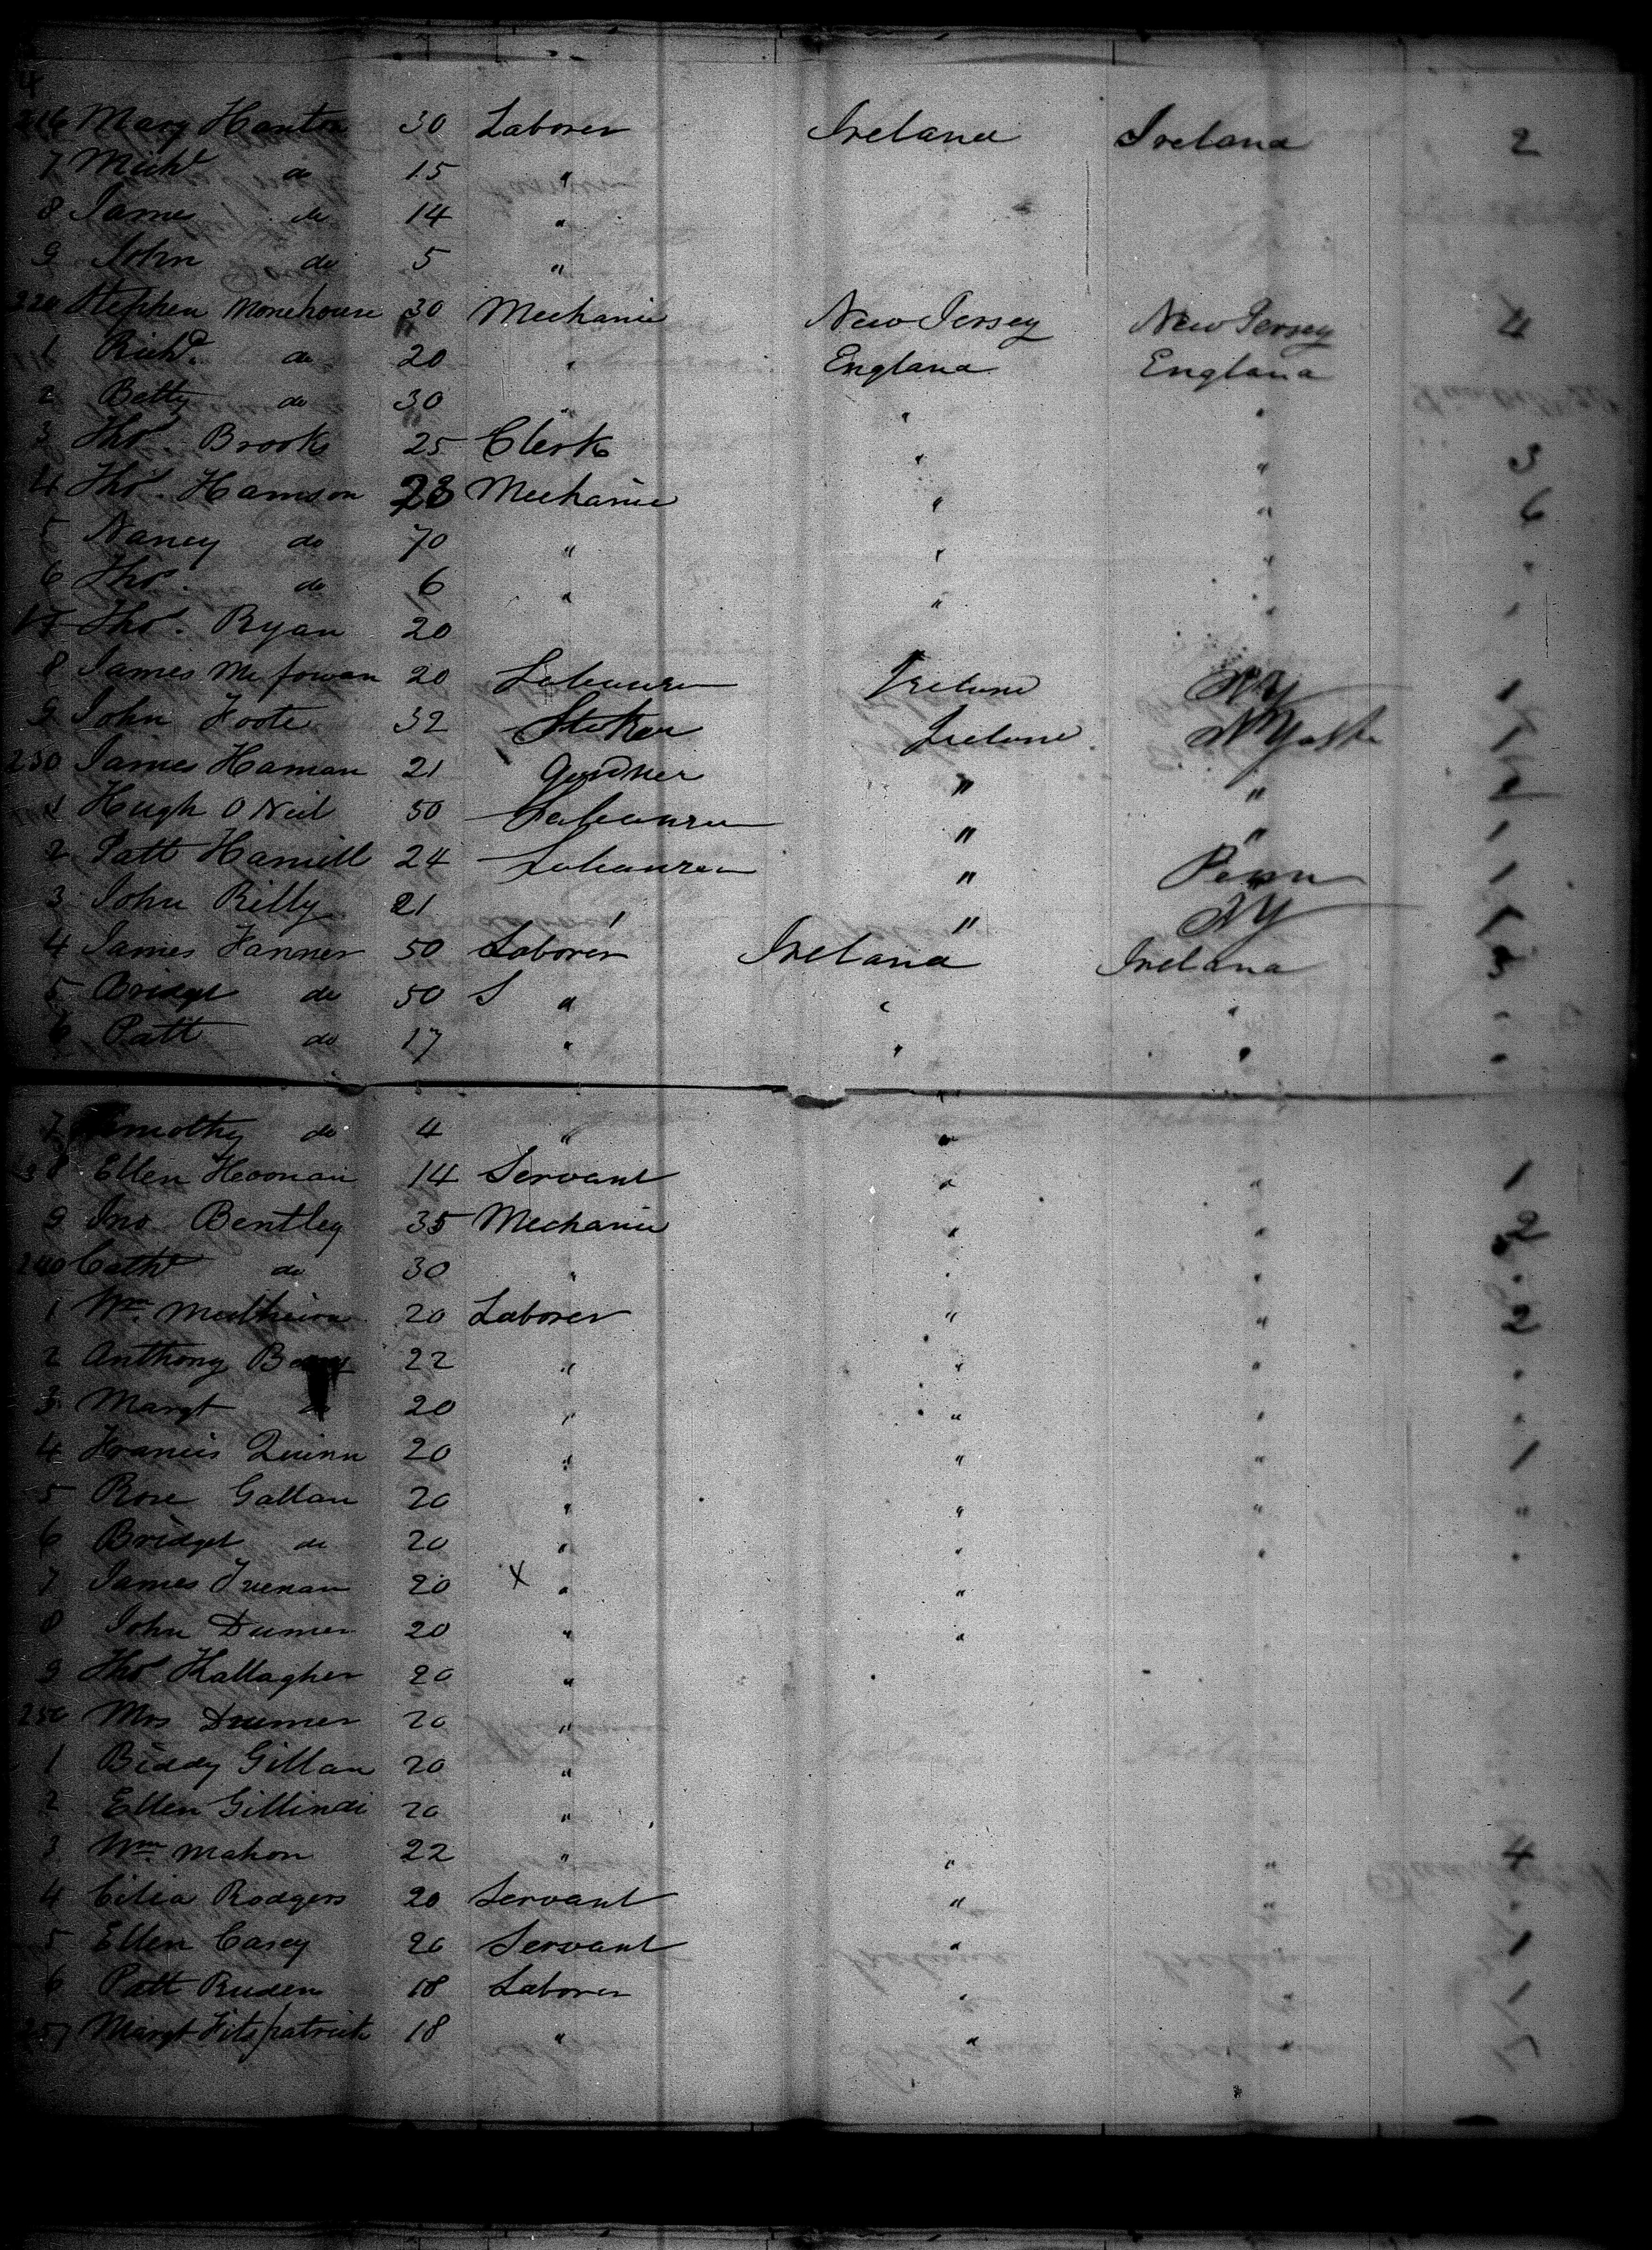 4
216 Mary Hanton 30 Laborer Ireland Ireland 2
7 Michl do 15 "
8 James do 14 "
9 John do 5 "
220 Stephen Morehouse 30 Mechanic New Jersey New Jersey 4
1 Richd. do 20 " England England
2 Betty do 30 " " "
3 Thos. Brooks 25 Clerk " " 3
4 Thos. Hamson 23 Mechanic " " 6
5 Nancy do 70 " " " "
6 Thos. do 6 " " " "
Thos. Ryan 20
8 James Mc 20 Labourer Ireland NY 1
9 John Foote 32 Stoker Ireland. NYork 1
230 James Haman 21 Gardner " " 2
1 Hugh O Neil 50 Labourer " " 1
2 Patt Hamill 24 Labourer " Penn 1
3 John Rilly 21 " " NY 1
4 James Fanner 50 Laborer Ireland Ireland 5
5 Bridget do 50 S " " " "
6 Patt do 17 " " " "
7 Timothy do 4 " "
38 Ellen Heonan 14 Servant " " 1
9 Jno. Bentley 35 Mechanic " " 2
240 Cathe do 30 " " " "
1 Wm. 20 Laborer " " 2
2 Anthony 22 " " " "
3 Margt do 20 " " " "
4 Francis Quinn 20 " " " 1
5 Rose Gallan 20 " " " "
6 Bridget do 20 " " " "
7 James 20 X " "
8 John Dumer 20 " "
9 Thos Kallagher 20 "
250 Mrs Dumer 20 "
1 Biddy Gillan 20 "
2 Ellen 20 "
3 Wm. Mahon 22 " " " 4
4 Cilia Rodgers 20 Servant " " "
5 Ellen Casey 20 Servant " 1
6 Patt Ruden 18 Laborer " " 1
257 Margt Fitspatrick 18 " " "